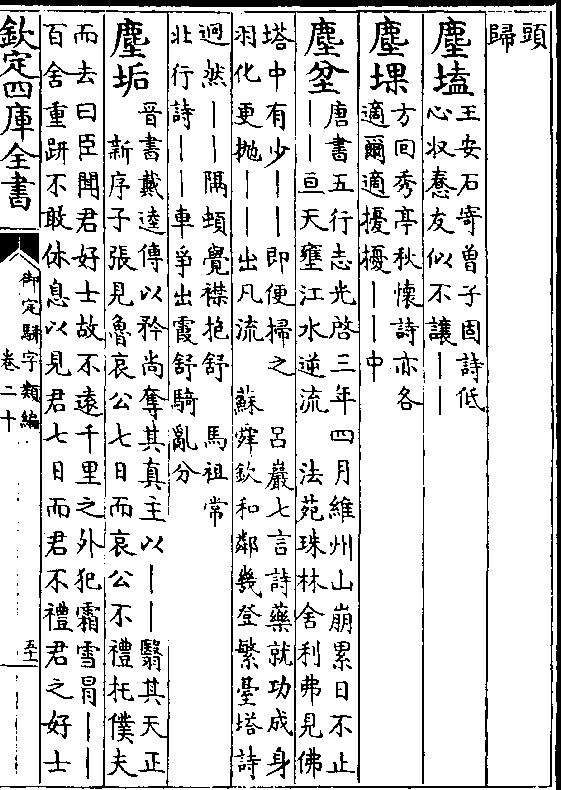 頭
歸
塵壒 王安石寄曾子固詩低
心収惷友似不讓｜｜
塵堁 方回秀亭秋懷詩亦各
適爾適擾擾｜｜中
塵坌 唐書五行志光啓三年四月維州山崩累日不止
｜｜亘天壅江水逆流　法苑珠林舍利弗見佛
塔中有少｜｜即便掃之　呂巖七言詩藥就功成身
羽化更抛｜｜出凡流　蘇舜欽和鄰幾登繁臺塔詩
迥然｜｜隅頓覺襟抱舒　馬祖常
北行詩｜｜車爭出霞舒騎亂分
塵垢 晉書戴逵傳以矜尚奪其真主以｜｜翳其天正
新序子張見魯哀公七日而哀公不禮托僕夫
而去曰臣聞君好士故不遠千里之外犯霜雪冒｜｜
百舍重趼不敢休息以見君七日而君不禮君之好士
欽定四庫全書
御定駢字類編
卷二十